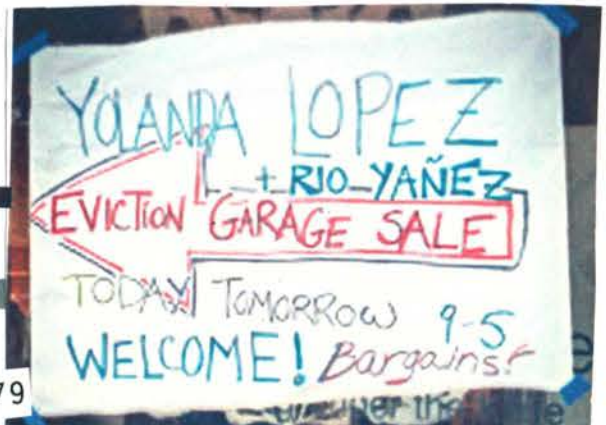 YOLANDA LOPEZ
+ RIO YAÑEZ
EVICTION GARAGE SALE
TODAY TOMORROW 9-5
WELCOME! Bargains!
79